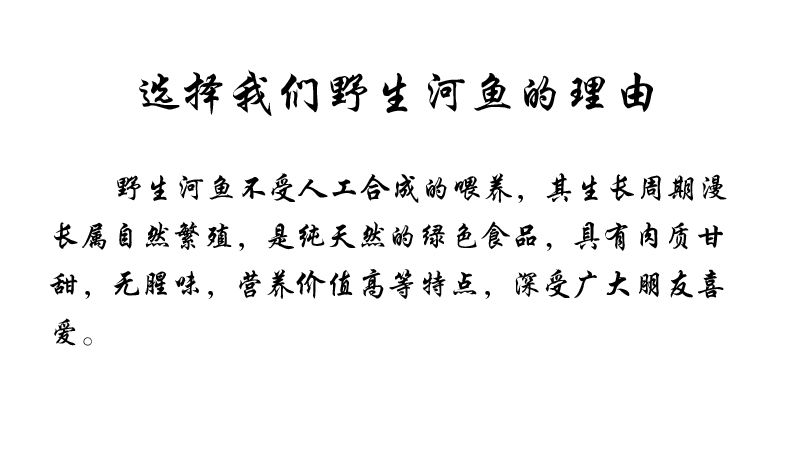 选择我们野生河鱼的理由
野生河鱼不受人工合成的喂养，其生长周期漫
长属自然繁殖，是纯天然的绿色食品，具有肉质甘
甜，无腥味，营养价值高等特点，深受广大朋友喜
爱。